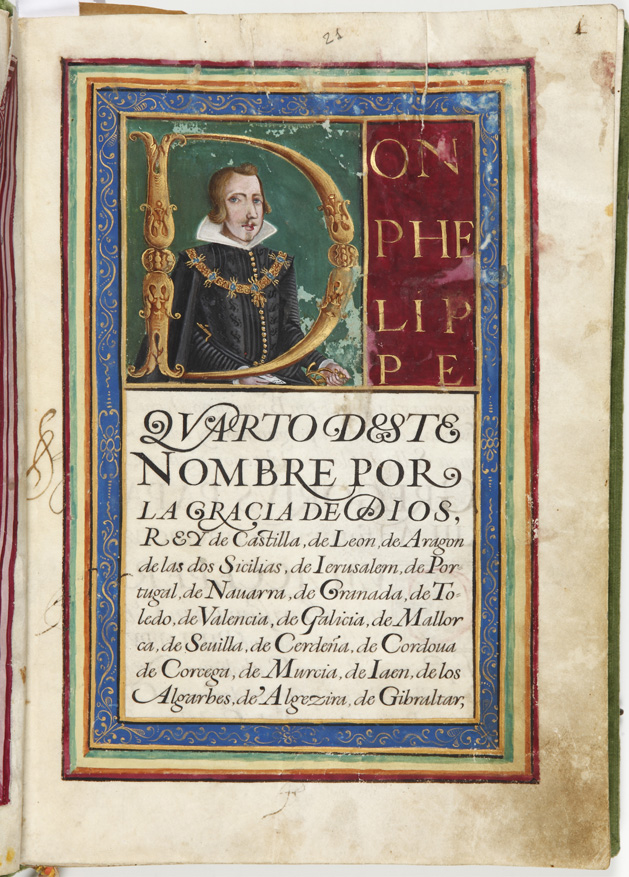 21
1
DON
PHE
LIP
PE
QVARTO DESTE
NOMBRE POR
LA GRACIA DE DIOS,
REY de Castilla, de Leon, de Aragon
de las dos Sicilias, de Ierusalem, de Por
tugal, de Nauarra, de Granada, de To-
ledo, de Valencia, de Galicia, de Mallor
ca, de Seuilla, de Cerdeña, de Cordoua
de Corcega, de Murcia, de Iaen, de los
Algarbes, de Algezira, de Gibraltar,